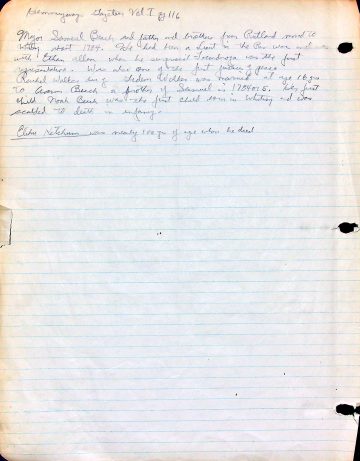 Hemmingway Gazetter Vol I pg 116
Major Samuel Beach and father and brothers from Rutland moved to
Whiting about 1784. He had been a Lieut in the Rev war and was
with Ethan Allen when he surprised Ticonderoga was the first
representative. Was also one of the first justices of peace
Walker was married at age 16 yrs
to Aaron Beach a brother of Samuel in 1784 or 5. Their first
child Noah Beach was the first child born in Whiting and was
scalded to death in infancy.
Elihu Ketchum was nearly 100 yrs of age when he died